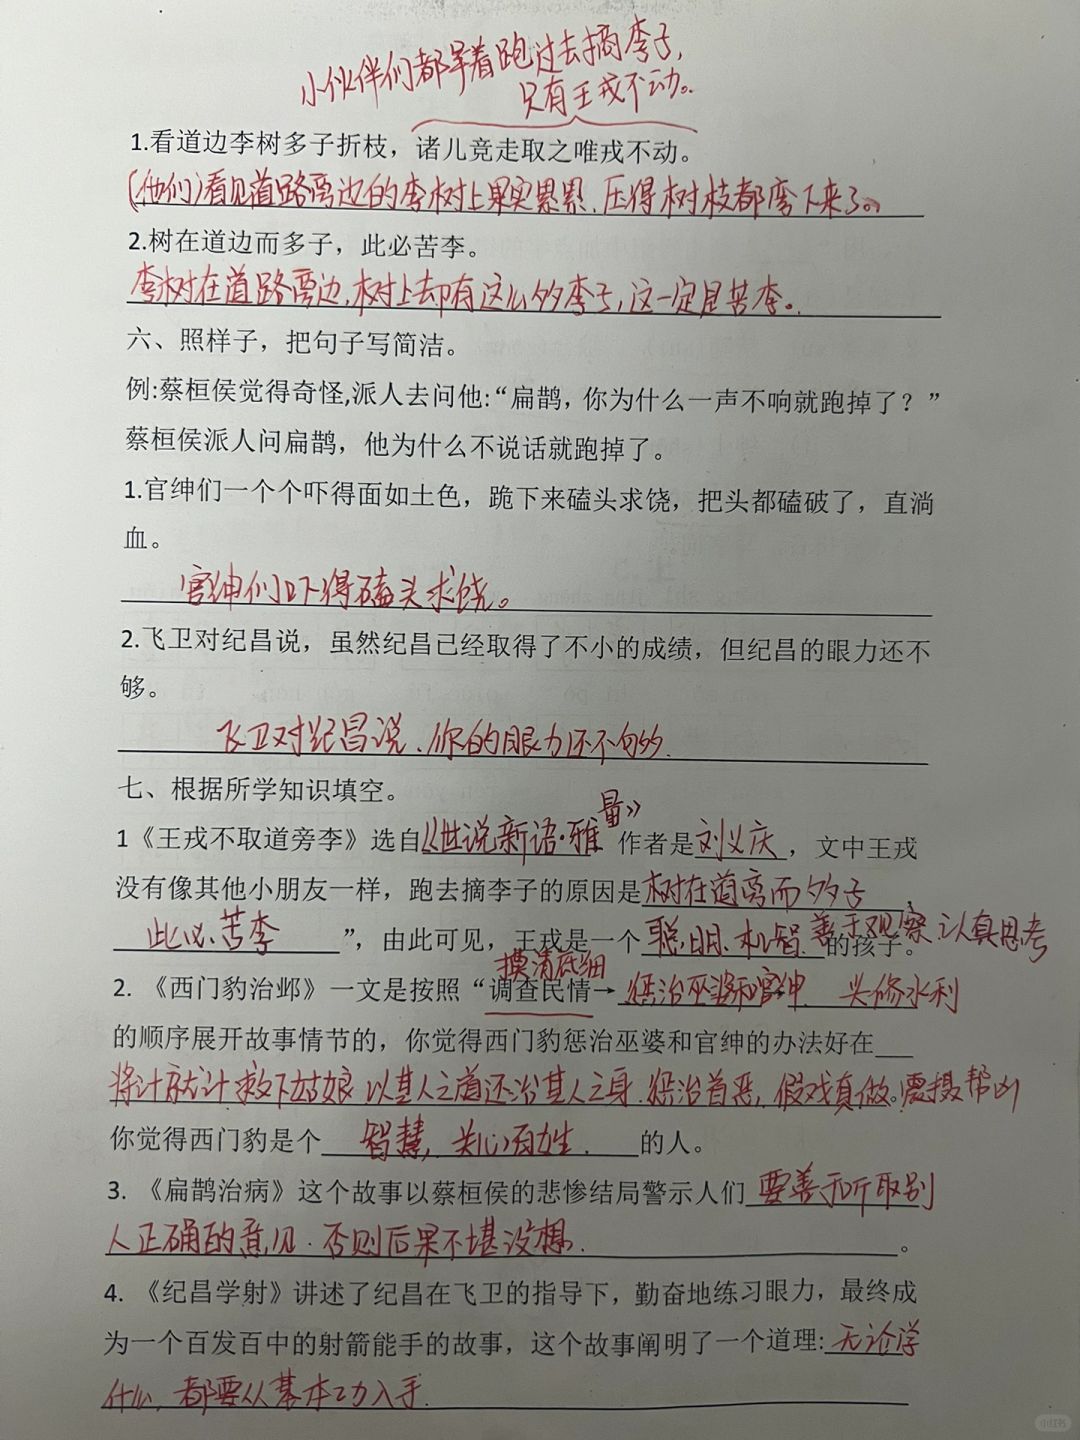 小伙伴们都争着跑过去摘李子,
只有王戎不动。
1.看道边李树多子折枝，诸儿竞走取之唯戎不动。
(他们)看见道路旁边的李树上果实累累.压得树枝都弯下来了。
2.树在道边而多子，此必苦李。
李树在道路旁边,树上却有这么多李子,这一定是苦李。
六、照样子，把句子写简洁。
例:蔡桓侯觉得奇怪,派人去问他:“扁鹊，你为什么一声不响就跑掉了？”
蔡桓侯派人问扁鹊，他为什么不说话就跑掉了。
1.官绅们一个个吓得面如土色，跪下来磕头求饶，把头都磕破了，直淌
血。
官绅们吓得磕头求饶。
2.飞卫对纪昌说，虽然纪昌已经取得了不小的成绩，但纪昌的眼力还不
够。
飞卫对纪昌说.你的眼力还不够.
七、根据所学知识填空。
1《王戎不取道旁李》选自《世说新语·雅量》作者是刘义庆，文中王戎
没有像其他小朋友一样，跑去摘李子的原因是树在道旁而多子，
此必苦李”，由此可见，王戎是一个聪明.机智.善于观察 认真思考的孩子。
摸清底细
2. 《西门豹治邺》一文是按照“调查民情→惩治巫婆和官绅 兴修水利
的顺序展开故事情节的，你觉得西门豹惩治巫婆和官绅的办法好在
将计就计救下姑娘 以其人之道还治其人之身.惩治首恶,假戏真做。震摄帮凶
你觉得西门豹是个智慧,关心百姓.的人。
3. 《扁鹊治病》这个故事以蔡桓侯的悲惨结局警示人们要善于听取别
人正确的意见.否则后果不堪设想.。
4. 《纪昌学射》讲述了纪昌在飞卫的指导下，勤奋地练习眼力，最终成
为一个百发百中的射箭能手的故事，这个故事阐明了一个道理:无论学
什么,都要从基本功入手.
小红书